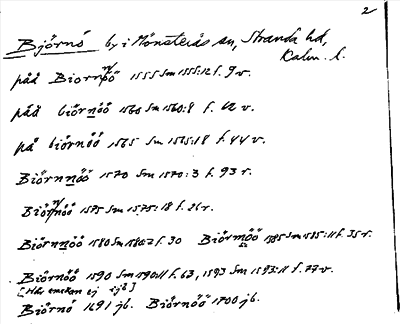 2
Björnö by i Mönsterås sn, Stranda hd,
Kalm. l.
på̊å Biornöö 1555 Sm 1555:12 f. 9 v.
påå biörnöö 1560 Sm 1560:8 f. 62 v.
på biörnöö 1565 Sm 1565:18 f. 44 v.
Biörnnöö 1570 Sm 1570:3 f. 93 r.
Biörnöö 1575 Sm 1575:18 f. 21 r.
Biörnnöö 1580 Sm 1580:2 f. 30 Biörnöö 1585 Sm 1585:11 f. 35 r.
Biörnöö 1590 Sm 1590:11 f. 63, 1593 Sm 1593:11 f. 77 v.
[Här ej
Biörnö 1691 jb. Biörnöö 1700 jb.